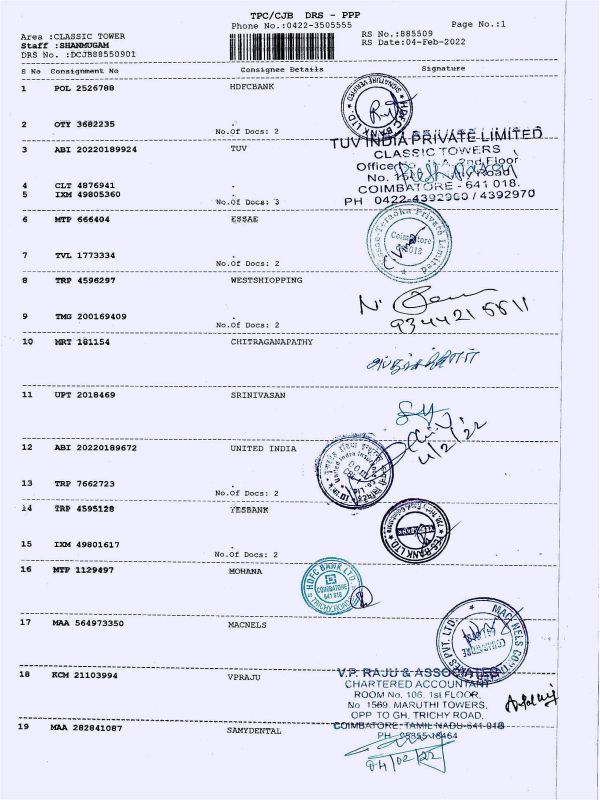 TPC/CJB DRS - PPP
Phone No.:0422-3505555
Page No.:1
Area :CLASSIC TOWER
RS No.:885509
Staff :SHANMUGAM
RS Date:04-Feb-2022
DRS No. :DCJB88550901
S No Consignment No Consignee Details Signature
1 POL 2526788 HDFCBANK
SIGNATURE VERIFIED
HDFC BANK LTD
2 OTY 3682235 .
No.Of Docs: 2
TUV INDIA PRIVATE LIMITED
3 ABI 20220189924 TUV
CLASSIC TOWERS
2nd Floor
Road
4 CLT 4876941 .
COIMBATORE - 641 018.
5 IXM 49805360 .
PH 0422-4392960 / 4392970
No.Of Docs: 3
6 MTP 666404 ESSAE
Essae-Teraoka Private Limited
Coimbatore
7 TVL 1773334 .
No.Of Docs: 2
8 TRP 4596297 WESTSHIOPPING
N.
9 TMG 200169409 .
No.Of Docs: 2
10 MRT 181154 CHITRAGANAPATHY
11 UPT 2018469 SRINIVASAN
4/2/22
12 ABI 20220189672 UNITED INDIA
13 TRP 7662723 .
No.Of Docs: 2
14 TRP 4595128 YESBANK
YES BANK LTD.
15 IXM 49801617 .
No.Of Docs: 2
16 MTP 1129497 MOHANA
HDFC BANK LTD.
COIMBATORE
641 018
TRICHY ROAD
17 MAA 564973350 MACNELS
18 KCM 21103994 VPRAJU
V.P. RAJU & ASSOCIATES
CHARTERED ACCOUNTANT
ROOM No. 106, 1st FLOOR,
No 1569, MARUTHI TOWERS,
OPP TO GH, TRICHY ROAD,
COIMBATORE, TAMIL NADU-641 018
19 MAA 282841087 SAMYDENTAL
04/02/22